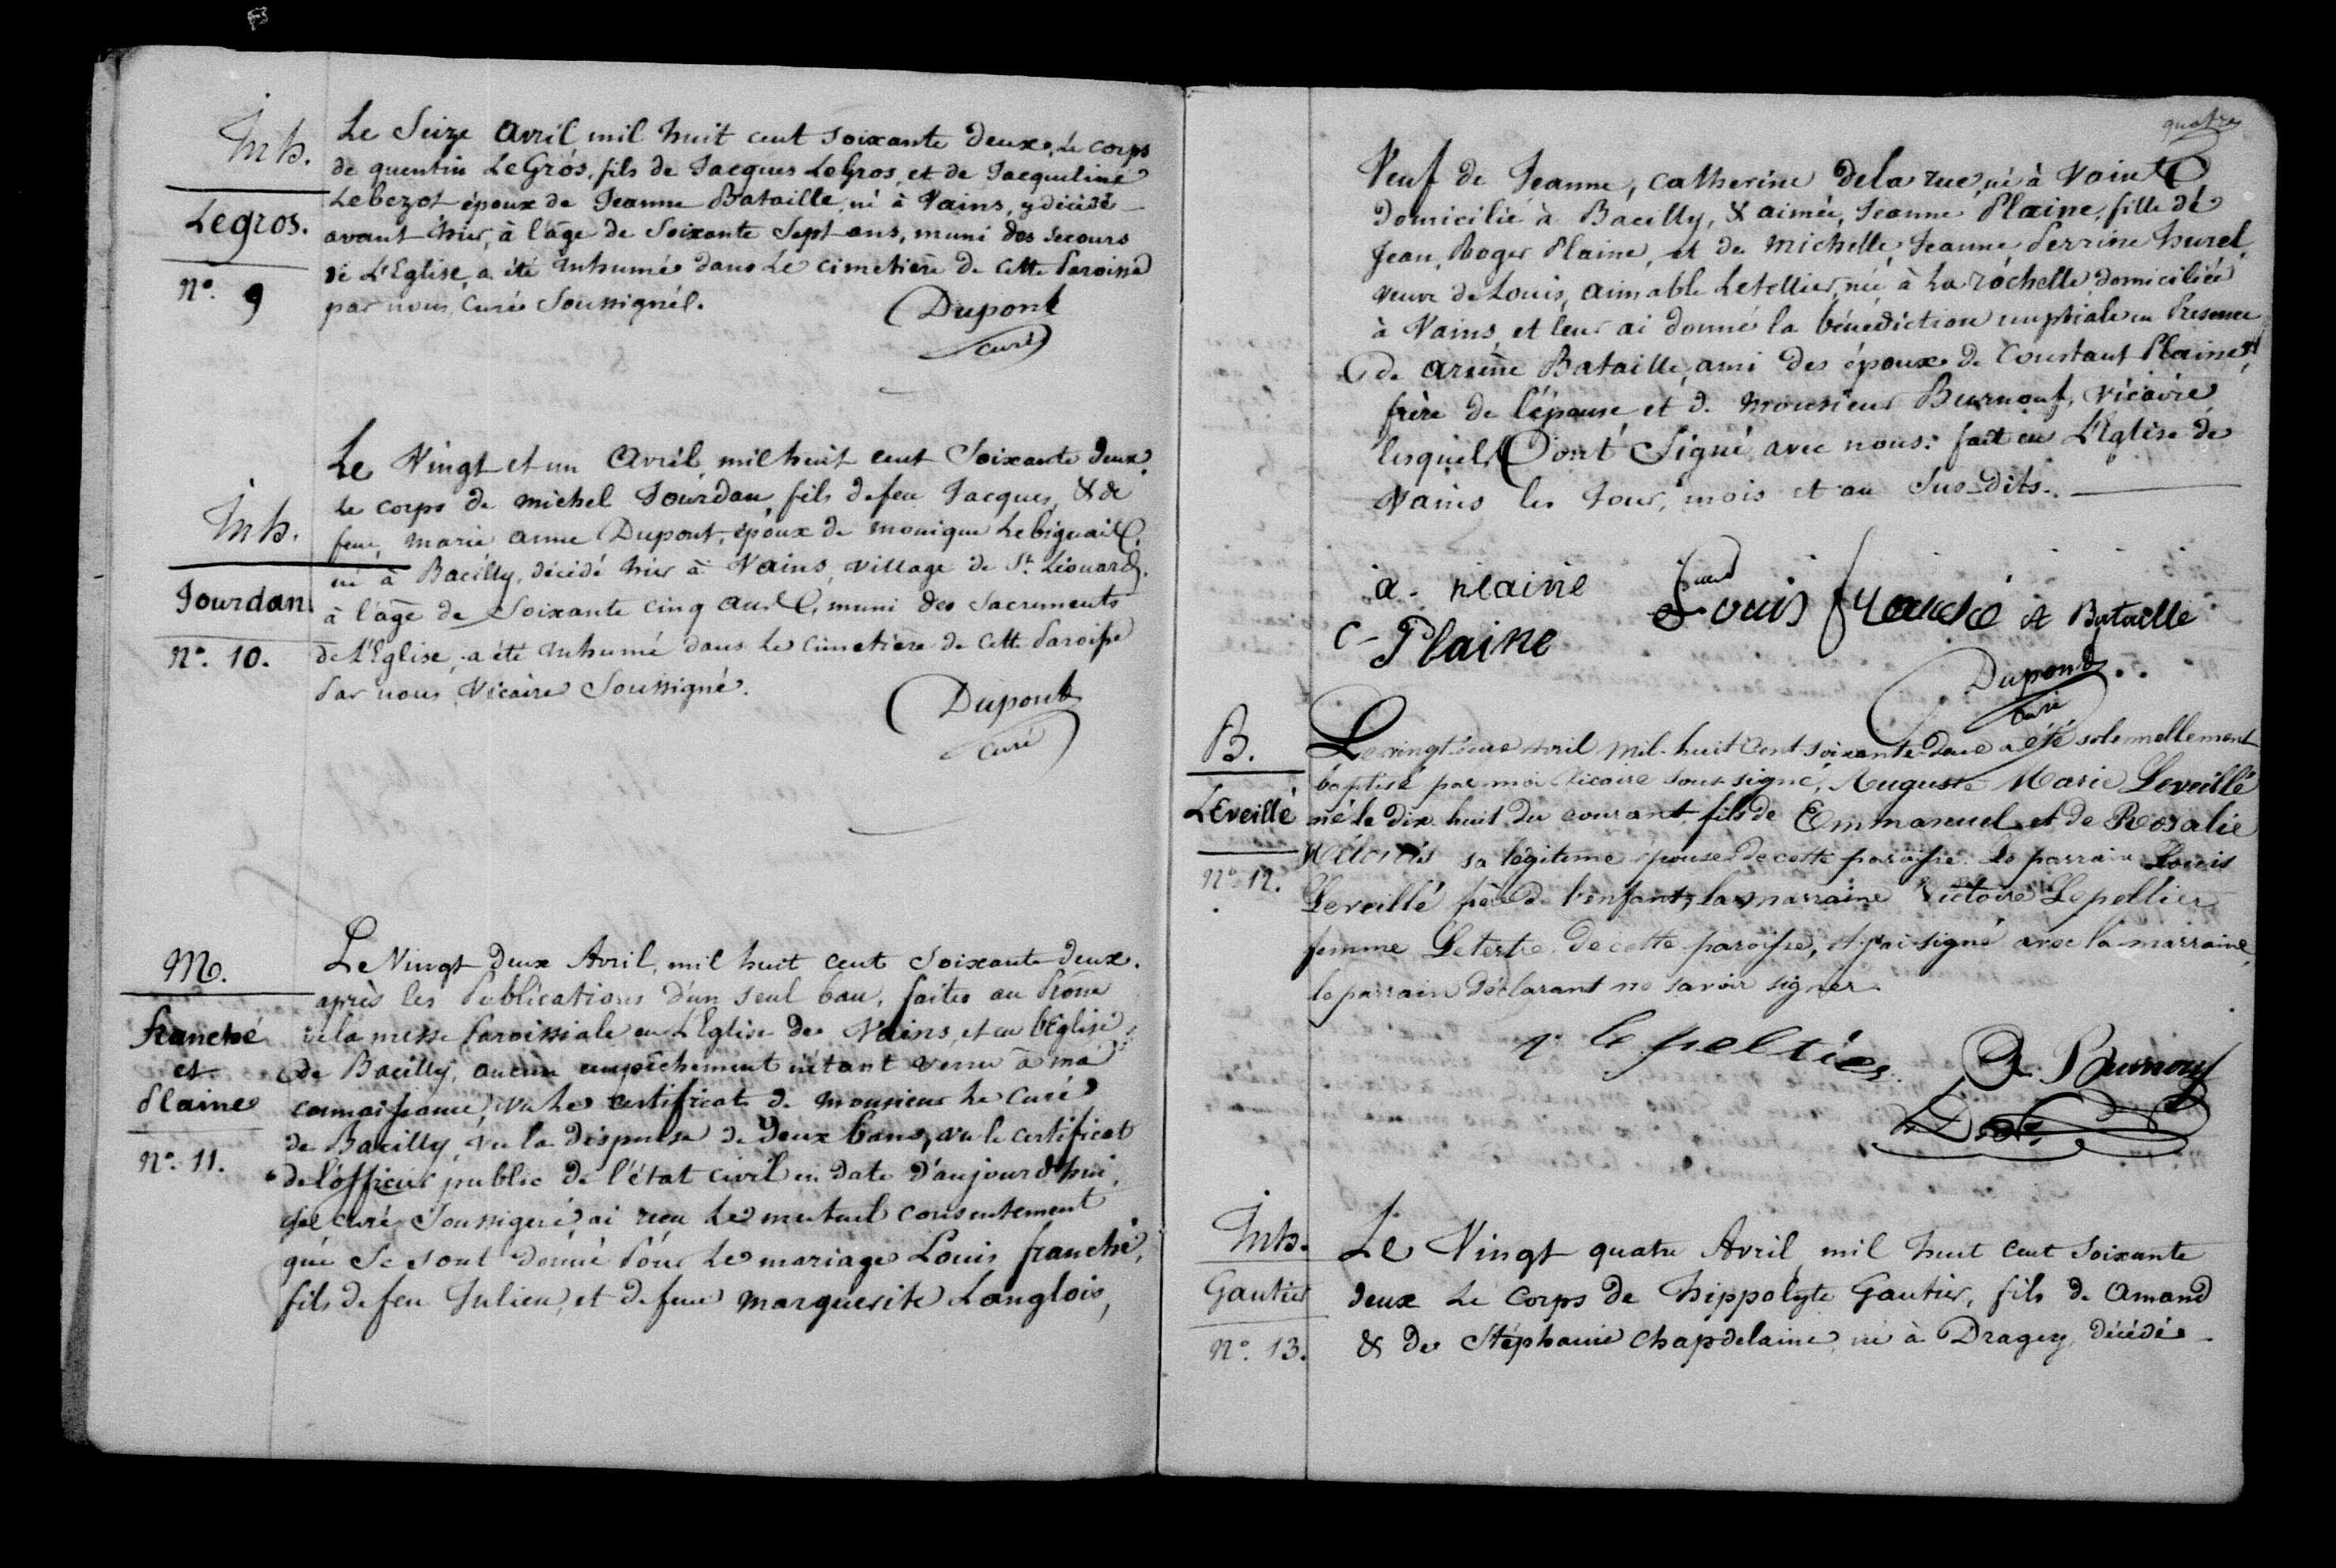 Inh.
Legros.
N°. 9
Le Seize Avril mil huit cent soixante deux, le corps
de quentin LeGros, fils de Jacques LeGros, et de Jacqueline
Lebezot époux de Jeanne Bataille, né à Vains, y décédé
avant hier, à l'âge de Soixante Sept ans, muni des secours
de L'Eglise, a été Inhumé dans Le cimetiere de cette Paroisse
par nous Curé Soussigné.
Dupont
curé
Inh.
Jourdan.
N°. 10.
Le Vingt et un Avril mil huit cent Soixante deux.
le corps de michel Jourdan, fils de feu Jacques, & de
feue, marie anne Dupont, époux de monique Lebiguait,
né à Bacilly, décédé hier à Vains, village de St. Léonard,
à l'âge de Soixante cinq ans, muni des Sacrements
de L'Eglise, a été Inhumé dans le cimetiere de cette Paroisse
Par nous Vicaire Soussigné.
Dupont
curé
M.
franché
et
Plaine
N°. 11.
Le Vingt deux Avril, mil huit cent soixante deux.
après les Publications d'un seul ban, faites au Prône
de la messe Paroissiale en L'Eglise de Vains, et en l'Eglise
de Bacilly, aucun empêchement n'étant venu à ma
connaissance, vu Le certificat de monsieur Le Curé
de Bacilly, vu la dispense de Deux bans, vu le certificat
de l'officier public de l'état civil en date d'aujourd'hui,
Je Curé Soussigné, ai reçu Le mutuel consentement
que Se sont donné Pour Le mariage Louis franché,
fils de feu Julien, et de feue marguerite Langlois,
quatre
Veuf de Jeanne, catherine dela rue, né à Vains
domicilié à Bacilly, & aimée, Jeanne Plaine, fille de
Jean, Roger Plaine, et de Michelle, Jeanne Perrine hurel,
veuve de Louis, aimable Letellier, née à La rochelle, domiciliée
à Vains, et leur ai donné la bénédiction nuptiale en Presence
de arsene Bataille, ami des époux, de Constant Plaine,
frère de l'épouse, et de monsieur Burnouf, Vicaire
lesquels ont Signé avec nous: fait en L'Eglise de
Vains les Jour, mois et an Sus-dits.
a. plaine
Louis franché
A Bataille
C- Plaine
Dupont
curé
B.
LEveillé
N°. 12.
Le vingt deux avril mil-huit cent-soixante-deux a été solennellement
baptisé par moi vicaire sous signé, Auguste Marie Leveillé
né le dix-huit du courant, fils de Emmanuel et de Rosalie
sa légitime épouse de cette paroisse. Le parrain Louis
Leveillé frère de l'enfant, la marraine Victoire Lepeltier
femme Letertre, de cette paroisse, et j'ai signé avec la marraine,
le parrain déclarant ne savoir signer.
v. le peltier
Burnouf
Inh.
Gautier
N°. 13.
Le Vingt quatre Avril mil huit cent soixante
deux Le Corps de hippolyte Gautier, fils de Amand
& de Stéphanie Chapdelaine, né à Dragey, décédé